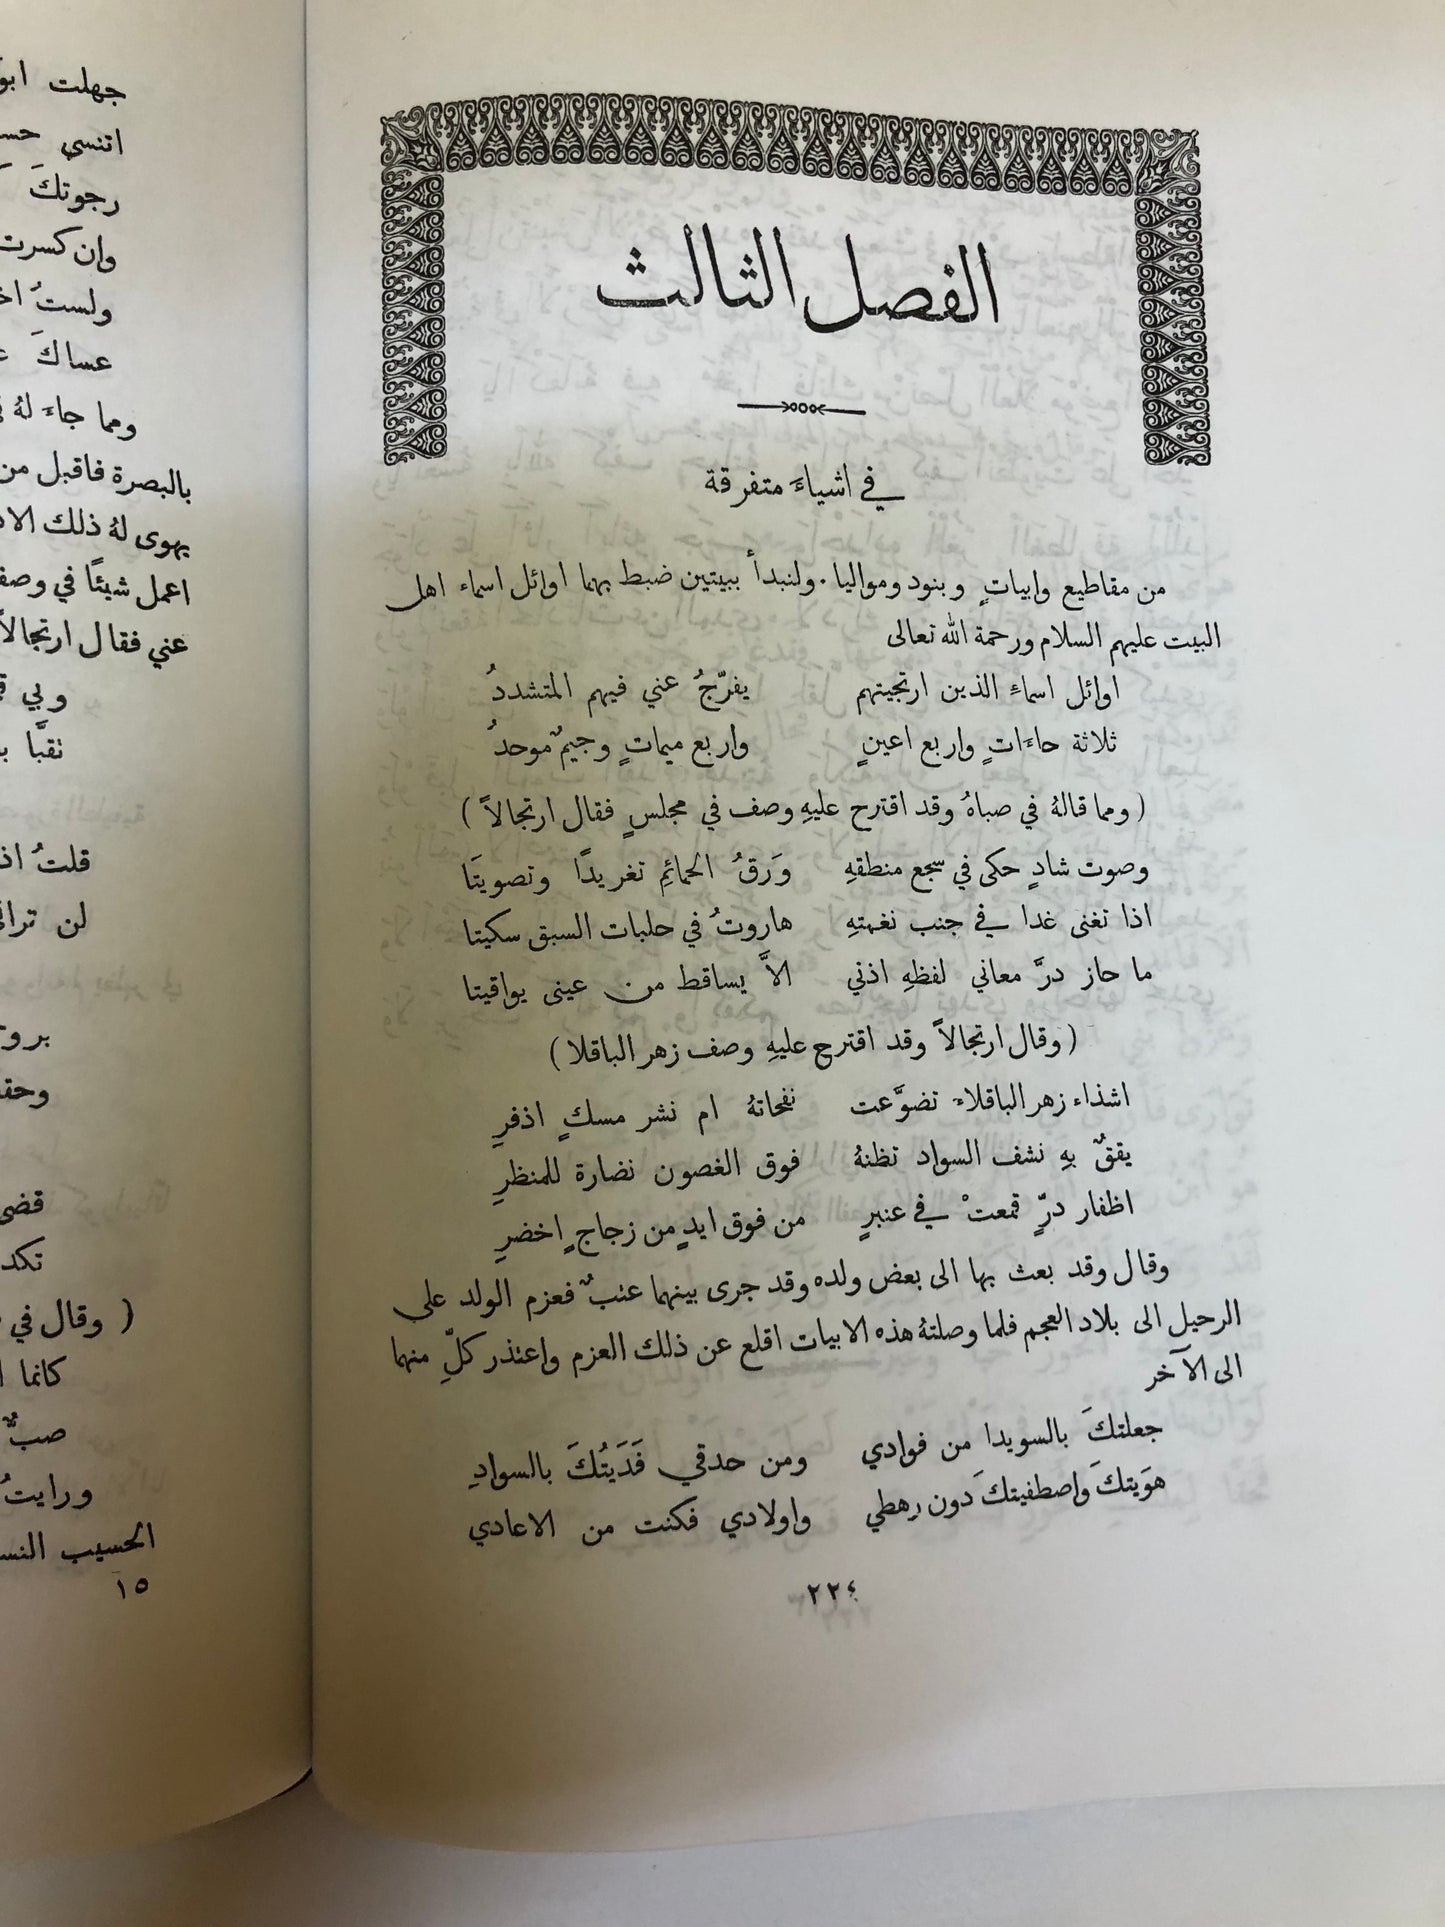 الفصل الثالث
في اشياءَ متفرقة
من مقاطيع وابياتٍ وبنود ومواليا. ولنبدأ ببيتين ضبط بهما اوائل اسماء اهل
البيت عليهم السلام ورحمة الله تعالى
اوائل اسماءِ الذين ارتجيتهم يفرّجُ عني فيهم المتشددُ
ثلاثة حاءَاتٍ واربع اعينٍ واربع ميماتٍ وجيمٌ موحدُ
( ومما قالهُ في صباهُ وقد اقترح عليهِ وصف في مجلسٍ فقال ارتجالاً )
وصوت شادٍ حكى في سجع منطقهِ وَرقُ الحمائمِ تغريدًا وتصويتَا
اذا تغنى غدا في جنب نغمتهِ هاروتُ في حلبات السبق سكيتا
ما حاز درَّ معاني لفظهِ اذني الاَّ يساقط من عينى يواقيتا
( وقال ارتجالاً وقد اقترح عليهِ وصف زهر الباقلا )
اشذاء زهر الباقلاءِ تضوَّعت نفحاتهُ ام نشر مسكٍ اذفرِ
يققٌ بهِ نشف السواد تظنهُ فوق الغصون نضارة للمنظرِ
اظفار درٍّ قمعتْ في عنبرٍ من فوق ايدٍ من زجاجٍ اخضرِ
وقال وقد بعث بها الى بعض ولده وقد جرى بينهما عتبٌ فعزم الولد على
الرحيل الى بلاد العجم فلما وصلتهُ هذه الابيات اقلع عن ذلك العزم واعتذر كلٌّ منهما
الى الآخر
جعلتكَ بالسويدا من فوادي ومن حدقي فَدَيتُكَ بالسوادِ
هوَيتكَ واصطفيتكَ دون رهطي واولادي فكنت من الاعادي
٢٢٤
جهلت
اتنسي
رجوتكَ
وان كسرت
ولستُ
عساكَ
ومما جاءَ لهُ
بالبصرة فاقبل من
يهوى لهُ ذلك
اعمل شيئًا في
عني فقال ارتجالاً
وبي
نقبَّا
قلتُ
لن
وحق
قضى
تكد
( وقال في
كانما
صبٌّ
ورايتُ
الحسيب
١٥